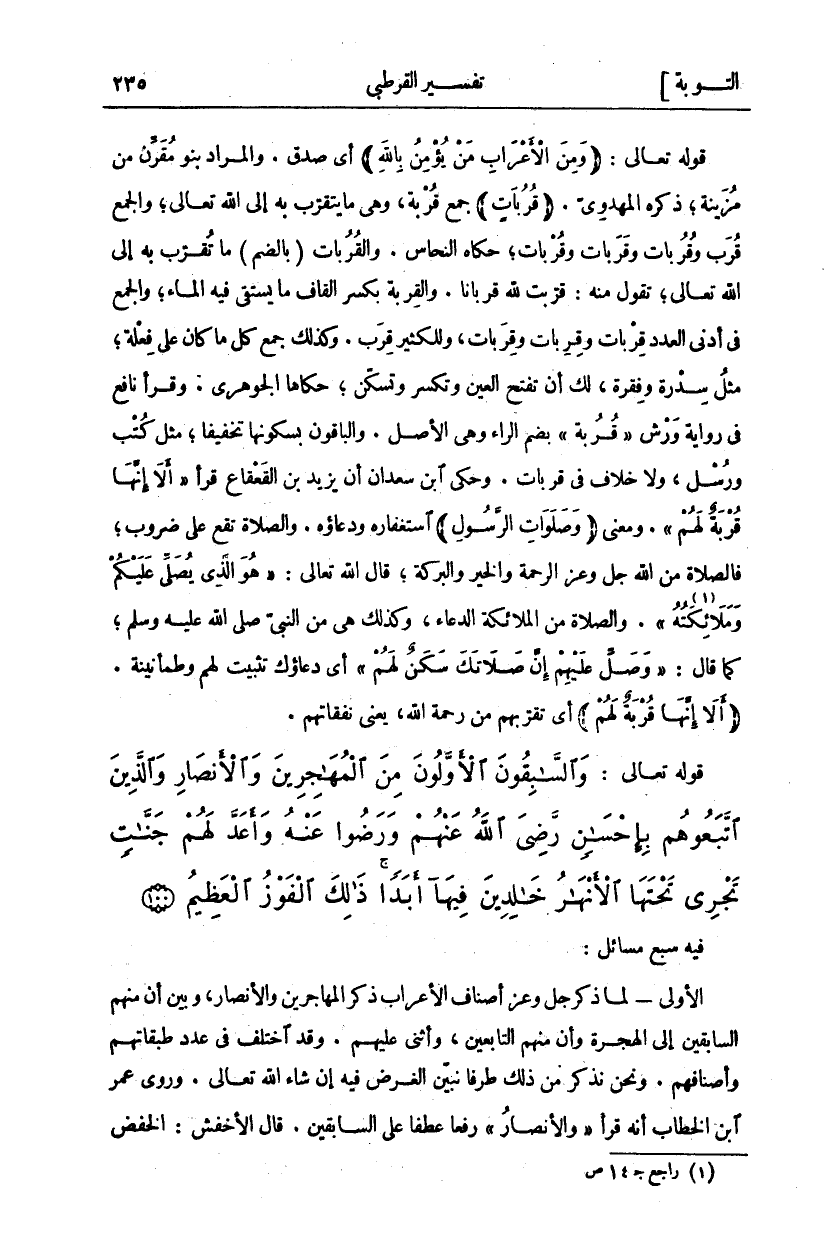 التــوبة ] تفســير القرطبى ٢٣٥
قوله تعـالى : ﴿ وَمِنَ الْأَعْرَابِ مَنْ يُؤْمِنُ بِاللهِ ﴾ أى صدق . والمـراد بنو مُقَرِّن من
مُزَينة ؛ ذكره المهدوىّ . ﴿ قُرُبَاتٍ ﴾ جمع قُرْبة ، وهى مايتقرّب به إلى الله تعـالى؛ والجمع
قُرَب وقُرُبات وقُرَبات وقُرْبات؛ حكاه النحاس . والقُرُبات ( بالضم ) ما تُقُــرّب به إلى
الله تعـالى؛ تقول منه : قرّبت لله قربانا . والقِربة بكسر القاف ما يستقى فيه المـاء؛ والجمع
فى أدنى العدد قِرْبات وقِرِبات وقِرَبات ، وللكثير قِرَب . وكذلك جمع كل ما كان على فِعْلة؛
مثلُ سِـدْرة وفِقرة ، لك أن تفتح العين وتكسر وتسكّن ؛ حكاها الجوهرى . وقـرأ نافع
فى رواية وَرْش « قُـرُبة » بضم الراء وهى الأصـل . والباقون بسكونها تخفيفا ؛ مثل كُتُب
ورُسُـل ، ولا خلاف فى قربات . وحكى آبن سعدان أن يزيد بن القَعْقاع قرأ « أَلَا إِنَّهَـا
قُرُبَةٌ لَهُمْ » . ومعنى ﴿ وَصَلَوَاتِ الرَّسُـولِ ﴾ آستغفاره ودعاؤه . والصلاة تقع على ضروب؛
فالصلاة من الله جل وعز الرحمة والخير والبركة ؛ قال الله تعالى : « هُوَ الَّذِى يُصَلِّى عَلَيْكُمْ
وَمَلَائِكَتُهُ (١) » . والصلاة من الملائكة الدعاء ، وكذلك هى من النبىّ صلى الله عليـه وسلم ؛
كما قال : « وَصَلِّ عَلَيْهِمْ إِنَّ صَـلَاتَكَ سَكَنٌ لَهُمْ » أى دعاؤك تثبيت لهم وطمأنينة .
﴿ أَلَا إِنَّهَـا قُرْبَةٌ لَهُمْ ﴾ أى تقرّبهم من رحمة الله، يعنى نفقاتهم .
قوله تعـالى : وَٱلسَّـٰبِقُونَ ٱلْأَوَّلُونَ مِنَ ٱلْمُهَـٰجِرِينَ وَٱلْأَنصَارِ وَٱلَّذِينَ
ٱتَّبَعُوهُم بِإِحْسَـٰنٍ رَّضِىَ ٱللَّهُ عَنْهُـمْ وَرَضُوا عَنْـهُ وَأَعَدَّ لَهُـمْ جَنَّـٰتٍ
تَجْرِى تَحْتَهَا ٱلْأَنْهَـٰرُ خَـٰلِدِينَ فِيهَآ أَبَدًا ۚ ذَٰلِكَ ٱلْفَوْزُ ٱلْعَظِيمُ ١٠٠
فيه سبع مسائل :
الأولى — لمـا ذكر جل وعز أصناف الأعراب ذكر المهاجرين والأنصار، وبين أن منهم
السابقين إلى الهجـرة وأن منهم التابعين ، وأثنى عليهـم . وقد آختلف فى عدد طبقاتهـم
وأصنافهم . ونحن نذكر من ذلك طرفا نبيّن الغـرض فيه إن شاء الله تعـالى . وروى عمر
آبن الخطاب أنه قرأ « والأنصـارُ » رفعا عطفا على السـابقين . قال الأخفش : الخفض
(١) راجع جـ ١٤ ص